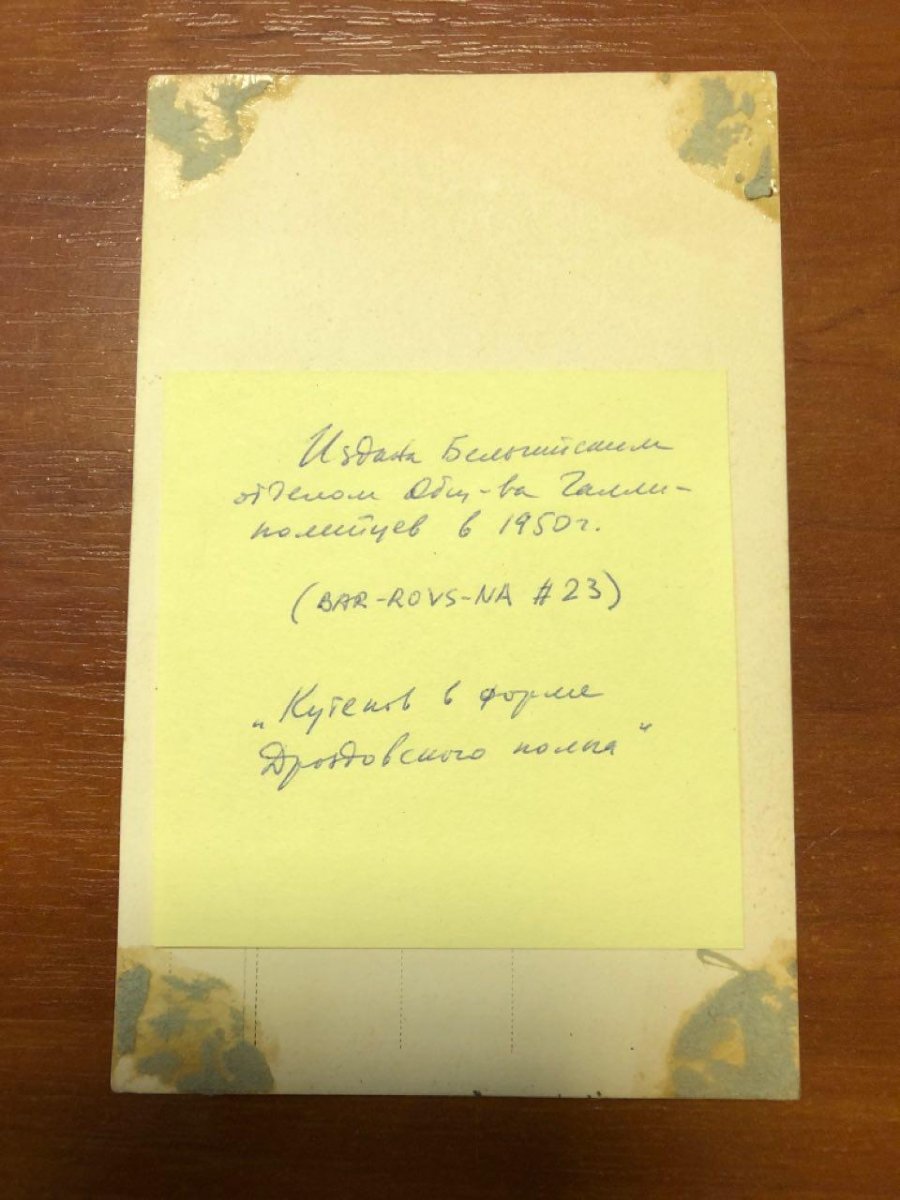 Издана Бельгийским
отделом Общ-ва Галли-
политцев в 1950г.
(BAR-ROVS-NA #23)
„Кутепов в форме
Дроздовского полка"